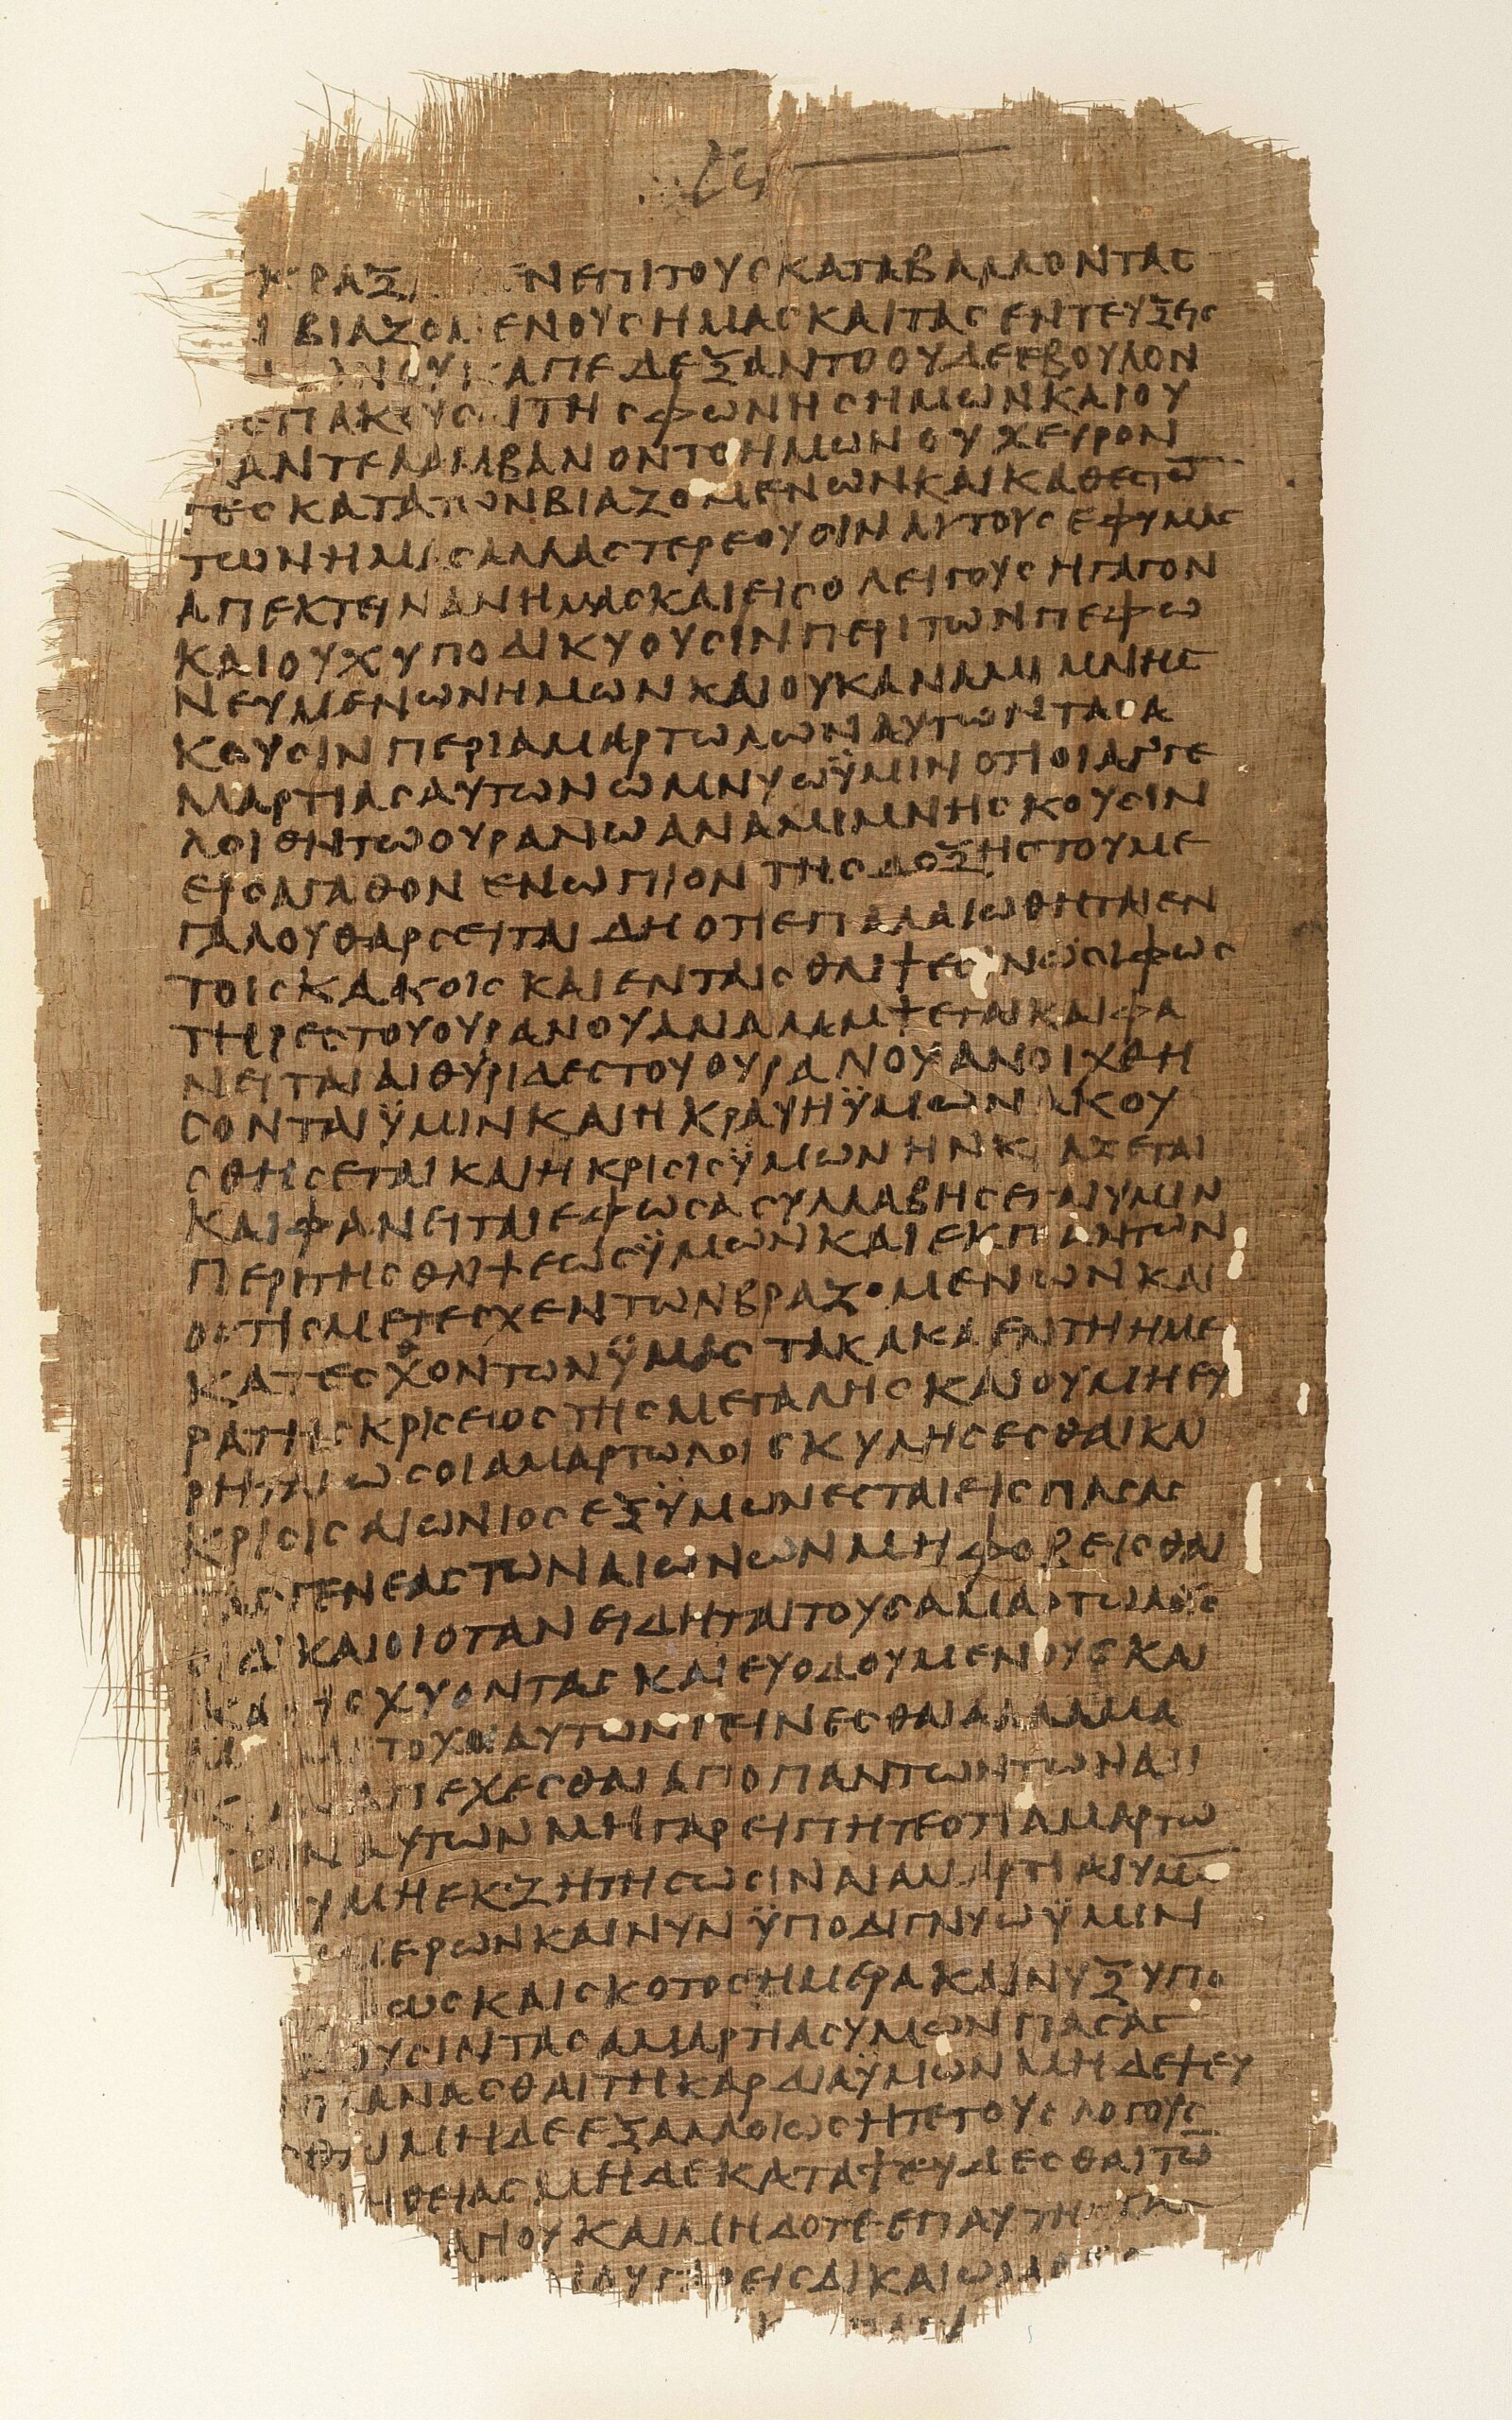 ΚΡΑΞ ΕΝΕΠΙΤΟΥϹΚΑΤΑΒΑΛΛΟΝΤΑϹ
ΒΙΑΖΟΜΕΝΟΥϹΗΜΑϹΚΑΙΤΑϹΕΝΤΕΥΞΕΙϹ
ΟΥΚΑΠΕΔΕΞΑΝΤΟΟΥΔΕΕΒΟΥΛΟΝ
ΕΠΑΚΟΥϹΑΙΤΗϹΦΩΝΗϹΗΜΩΝΚΑΙΟΥ
ΑΝΤΕΛΑΜΒΑΝΟΝΤΟΗΜΩΝΟΥΧΕΥΡΟΝ
ΤΕϹΚΑΤΑΤΩΝΒΙΑΖΟΜΕΝΩΝΚΑΙΚΑΘΕϹΤΩ̅
ΤΩΝΗΜΑϹΑΛΛΑϹΤΕΡΕΟΥϹΙΝΑΥΤΟΥϹΕΦΥΜΑϹ
ΑΠΕΚΤΕΙΝΑΝΗΜΑϹΚΑΙΕΙϹΟΛΕΙΓΟΥϹΗΓΑΓΟΝ
ΚΑΙΟΥΧΥΠΟΔΙΚΥΟΥϹΙΝΠΕΡΙΤΩΝΠΕΦΩ
ΝΕΥΜΕΝΩΝΗΜΩΝΚΑΙΟΥΚΑΝΑΜΙΜΝΗϹ
ΚΟΥϹΙΝΠΕΡΙΑΜΑΡΤΩΛΩΝΑΥΤΩΝΤΑϹΑ
ΜΑΡΤΙΑϹΑΥΤΩΝΩΜΝΥΩΫΜΙΝΟΤΙΟΙΑΓΓΕ
ΛΟΙΘΗΤΩΟΥΡΑΝΩΑΝΑΜΙΜΝΗϹΚΟΥϹΙΝ
ΕΙϹΑΓΑΘΟΝΕΝΩΠΙΟΝΤΗϹΔΟΞΗϹΤΟΥΜΕ
ΓΑΛΟΥΘΑΡϹΕΙΤΑΙΔΗΟΤΙΕΠΑΛΑΙΩΘΗΤΑΙΕΝ
ΤΟΙϹΚΑΚΟΙϹΚΑΙΕΝΤΑΙϹΘΛΙΨΕϹΙΝΩϹΙΦΩϹ
ΤΗΡΕϹΤΟΥΟΥΡΑΝΟΥΑΝΑΛΑΜΨΕΤΑΙΚΑΙΦΑ
ΝΕΙΤΑΙΑΙΘΥΡΙΔΕϹΤΟΥΟΥΡΑΝΟΥΑΝΟΙΧΘΗ
ϹΟΝΤΑΙΫΜΙΝΚΑΙΗΚΡΑΥΗΫΜΩΝΑΚΟΥ
ϹΘΗϹΕΤΑΙΚΑΙΗΚΡΙϹΙϹΫΜΩΝΗΝΚ ΑΞΕΤΑΙ
ΚΑΙΦΑΝΕΙΤΑΙΕΦΩϹΑϹΥΛΛΑΒΗϹΕΤΑΙΥΜΙΝ
ΠΕΡΙΤΗϹΘΛΙΨΕΩϹΫΜΩΝΚΑΙΕΚΠΑΝΤΩΝ
ΟϹΤΙϹΜΕΤΕϹΧΕΝΤΩΝΒΡΑΖΟΜΕΝΩΝΚΑΙ
ΚΑΤΕϹΧΟΝΤΩΝΫΜΑϹΤΑΚΑΚΑΕΝΤΗΗΜΕ
ΡΑΤΗϹΚΡΙϹΕΙΟϹΤΗϹΜΕΓΑΛΗϹΚΑΙΟΥΜΗΕΥ
ΡΗΤΑΙΩϹΟΙΑΜΑΡΤΩΛΟΙϹΚΥΛΗϹΕϹΘΑΙΚΑΙ
ΚΡΙϹΙϹΑΙΩΝΙΟϹΕΞΫΜΩΝΕϹΤΑΙΕΙϹΠΑϹΑϹ
ΤΑϹΓΕΝΕΑϹΤΩΝΑΙΩΝΩΝΜΗΦΟΒΕΙϹΘΑΙ
ΟΙΔΙΚΑΙΟΙΟΤΑΝΕΙΔΗΤΑΙΤΟΥϹΑΜΑΡΤΩΛΟΥϹ
ΚΑ ΙϹΧΥΟΝΤΑϹΚΑΙΕΥΟΔΟΥΜΕΝΟΥϹΚΑΙ
ΤΟΥΧΟΙΑΥΤΩΝΓΕΙΝΕϹΘΑΙΑΛΛΑΜΑ
ΑΠΕΧΕϹΘΑΙΑΠΟΠΑΝΤΩΝΤΩΝΑΔΙ
ΑΥΤΩΝΜΗΓΑΡΕΙΠΗΤΕΟΤΙΑΜΑΡΤΩ
ΥΜΗΕΚΖΗΤΗϹΩϹΙΝΑΙΑΜΑΡΤΙΑΙΥΜΩ̅
ΕΡΩΝΚΑΙΝΥΝΫΠΟΔΙΓΝΥΩΫΜΙΝ
ΩϹΚΑΙϹΚΟΤΟϹΗΜΕΡΑΚΑΙΝΥΞΥΠΟ
ΟΥϹΙΝΤΑϹΑΜΑΡΤΙΑϹΥΜΩΝΠΑϹΑϹ
ΑΝΑϹΘΑΙΤΗΚΑΡΔΙΑΫΜΩΝΜΗΔΕΨΕΥ
ΜΗΔΕΕΞΑΛΛΟΙΩϹΗΤΕΤΟΥϹΛΟΓΟΥϹ
ΗΘΕΙΑϹΜΗΔΕΚΑΤΑΨΕΥΔΕϹΘΑΙΤΩ̅
ΑΓΙΟΥΚΑΙΜΗΔΟΤΕΕΠΑΥΤΗ
ΟΥΓΑΡΕΙϹΔΙΚΑΙΩΜΑ